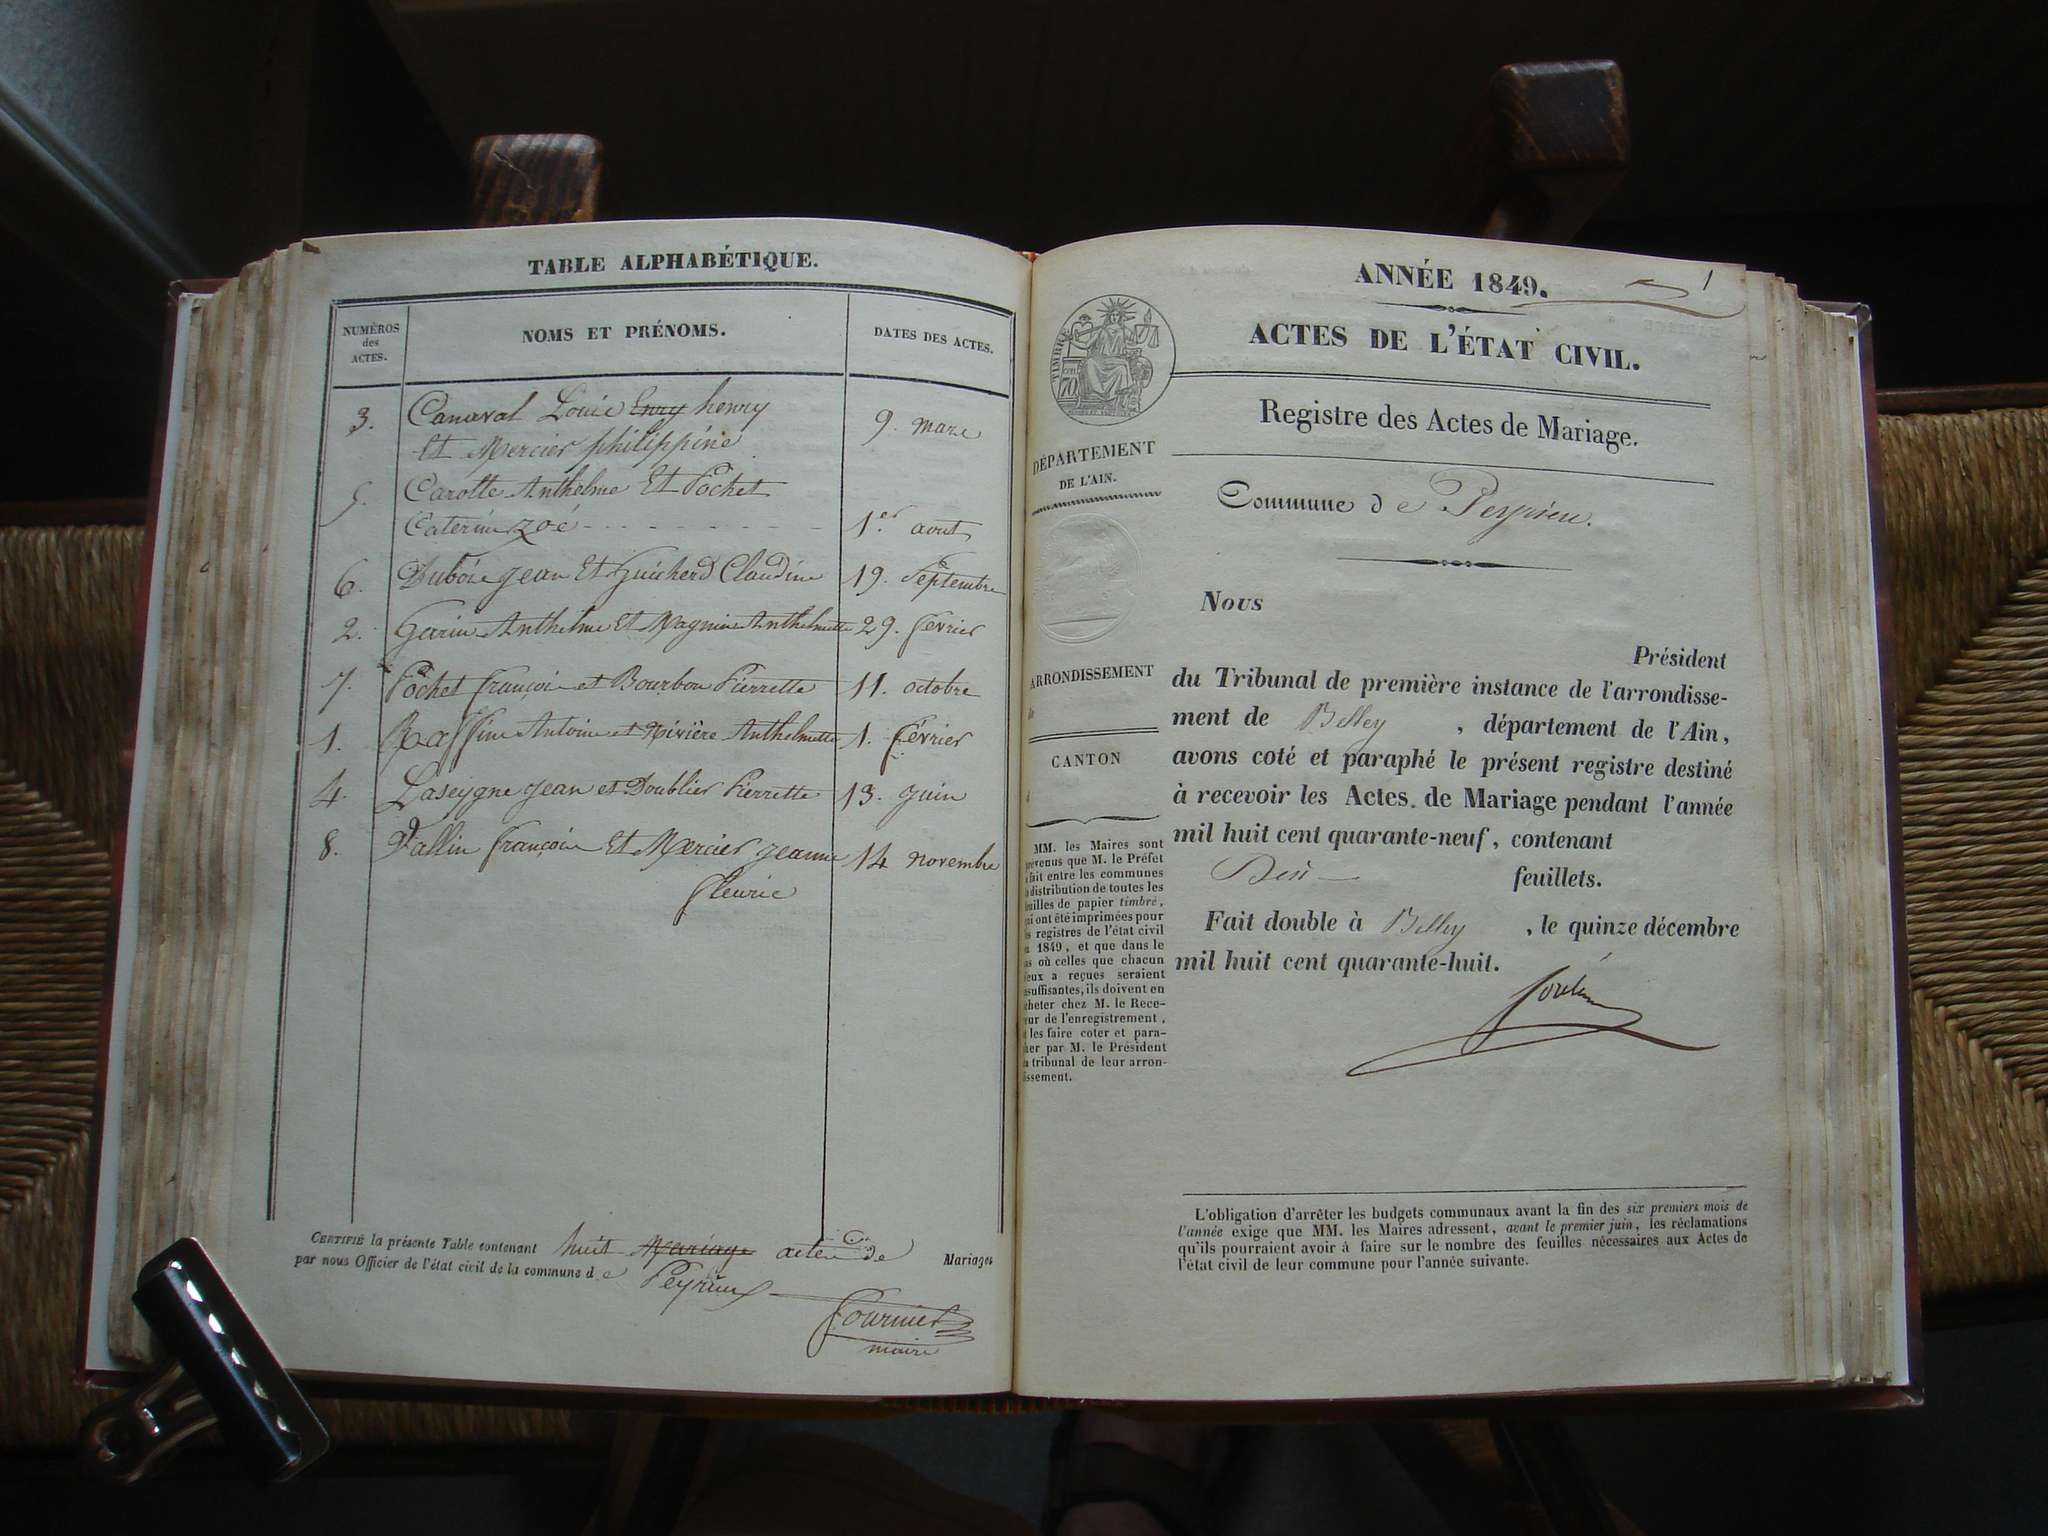 TABLE ALPHABÉTIQUE.
NUMÉROS des ACTES. NOMS ET PRÉNOMS. DATES DES ACTES.
3. Canaval Louis Enry henry
Et Mercier philippine 9. mars
5. Carotte Anthelme Et Pochet
Caterine Zoé 1.er aout
6. Dubois jean Et Guicherd Claudine 19. Septembre
2. Garin Anthelme Et Magnin Anthelmette 29. fevrier
7. Pochet françois et Bourbon Pierrette 11. octobre
1. Raffin Antoine et Rivière Anthelmette 1. février
4. Laseygne jean et Doublier Pierrette 13. juin
8. Vallin françois Et Mercier jeanne 14 novembre
fleurie
CERTIFIÉ la présente Table contenant huit Mariage actes de Mariages
par nous Officier de l'état civil de la commune de Peyrieu
Fournier
maire
1
ANNÉE 1849.
ACTES DE L'ÉTAT CIVIL.
Registre des Actes de Mariage.
TIMBRE
70
DÉPARTEMENT
DE L'AIN.
Commune de Peyrieu.
ARRONDISSEMENT
CANTON
MM. les Maires sont
prévenus que M. le Préfet
fait entre les communes
distribution de toutes les
feuilles de papier timbré,
qui ont été imprimées pour
les registres de l'état civil
1849, et que dans le
cas où celles que chacun
d'eux a reçues seraient
insuffisantes, ils doivent en
acheter chez M. le Rece-
veur de l'enregistrement,
et les faire coter et para-
pher par M. le Président
du tribunal de leur arron-
dissement.
Nous
Président
du Tribunal de première instance de l'arrondisse-
ment de Belley, département de l'Ain,
avons coté et paraphé le présent registre destiné
à recevoir les Actes de Mariage pendant l'année
mil huit cent quarante-neuf, contenant
feuillets.
Fait double à Belley, le quinze décembre
mil huit cent quarante-huit.
L'obligation d'arrêter les budgets communaux avant la fin des six premiers mois de
l'année exige que MM. les Maires adressent, avant le premier juin, les réclamations
qu'ils pourraient avoir à faire sur le nombre des feuilles nécessaires aux Actes de
l'état civil de leur commune pour l'année suivante.